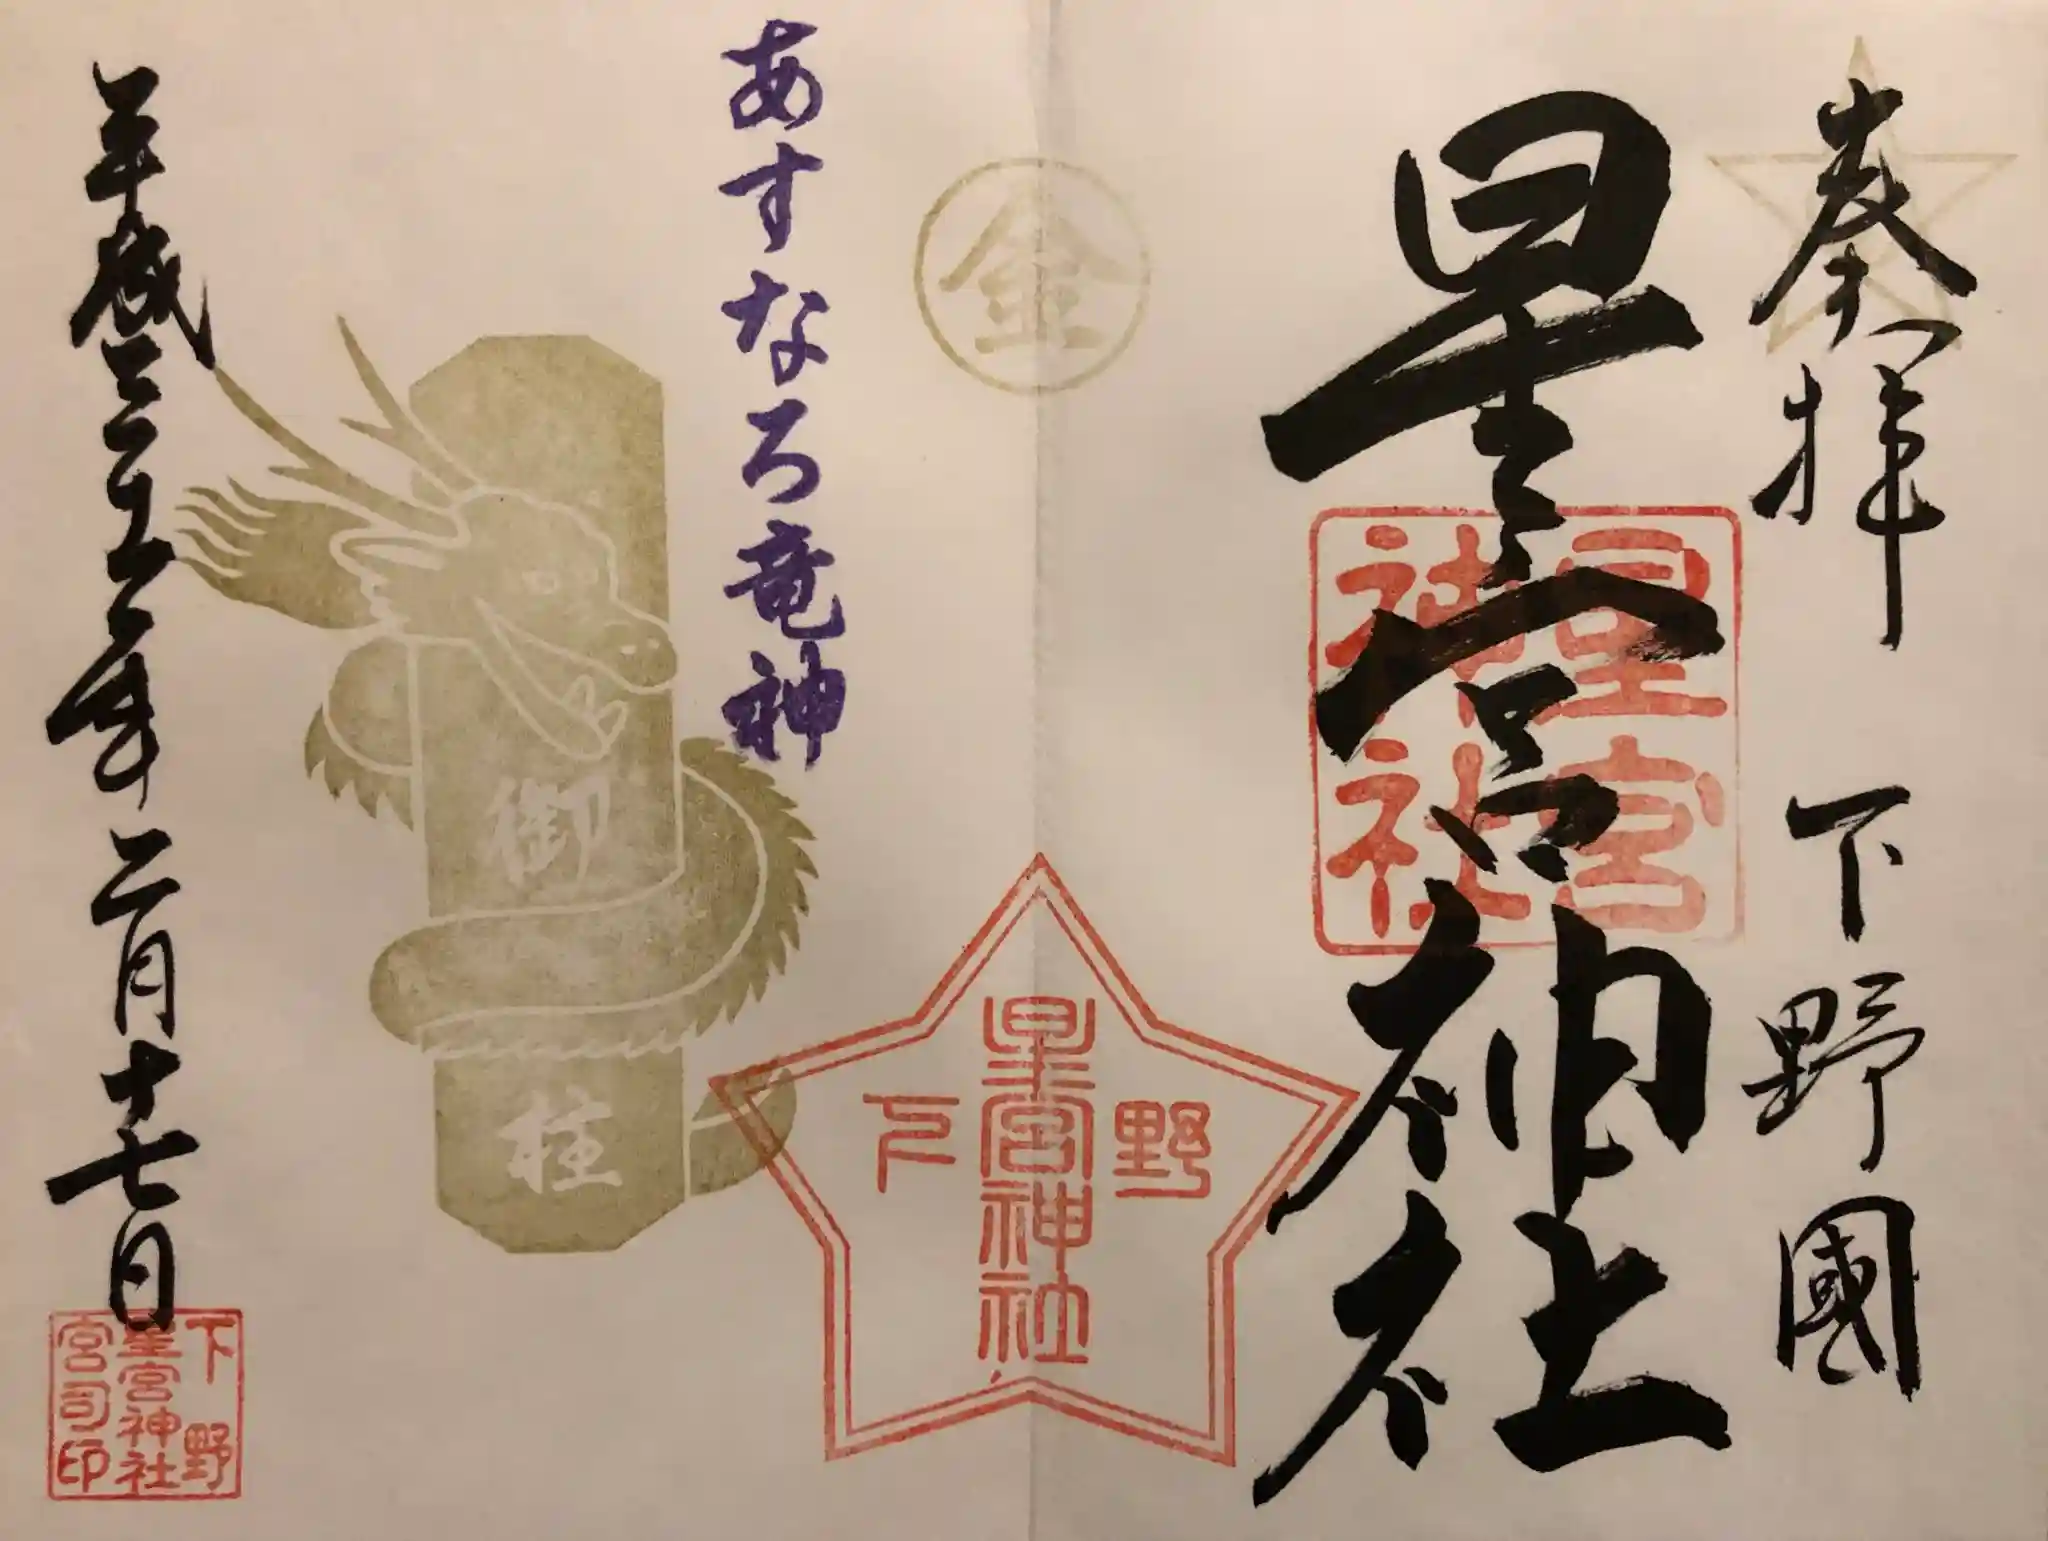 奉拝 下野國
星宮神社
星宮
神社
金
下野
星宮神社
あすなろ竜神
御柱
平成三十一年二月十七日
下野
星宮神社
宮司印